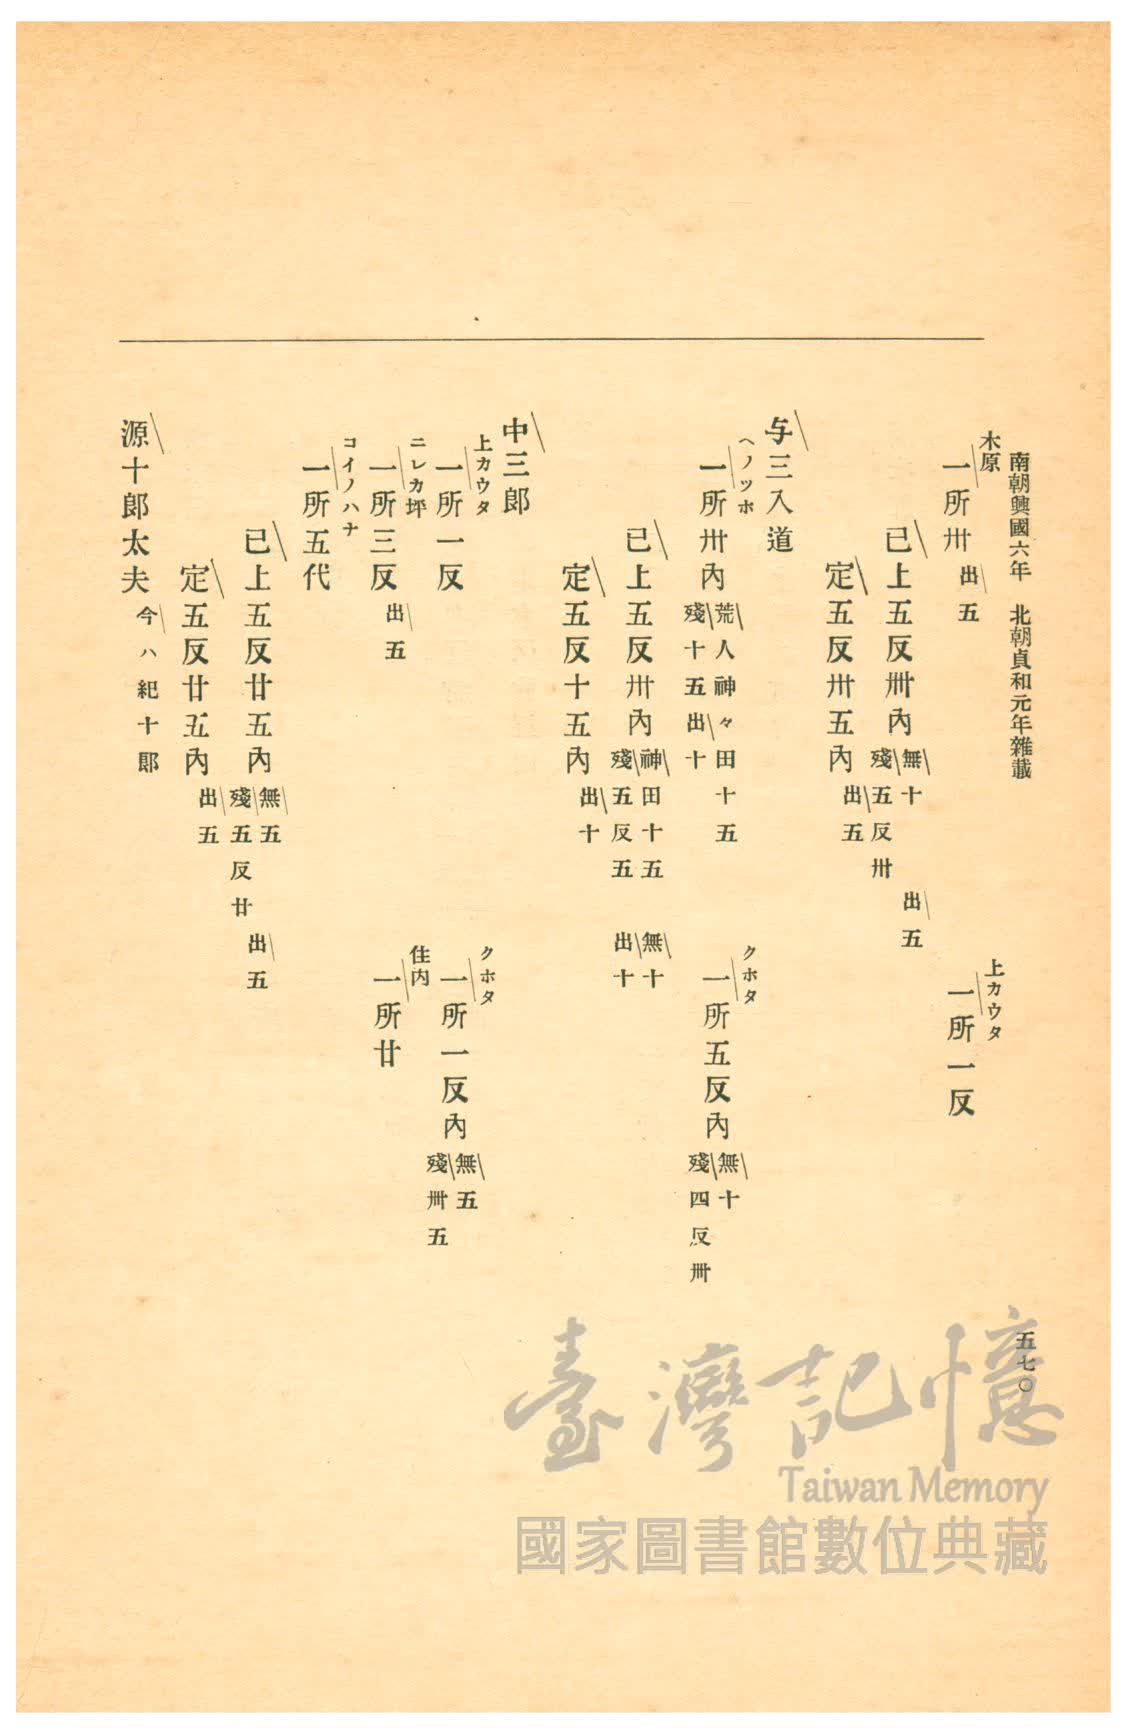 南朝興國六年　北朝貞和元年雜載
五七〇
木原
一所卅　出五
上カウタ
一所一反
已上五反卅内
無十　出五
殘五反卅
定五反卅五内　出五
与三入道
ヘノツホ
一所卅内
荒人神々田十五
殘十五出十
クホタ
一所五反内
無十
殘四反卅
已上五反卅内
神田十五　無十
殘五反五　出十
定五反十五内　出十
中三郎
上カウタ
一所一反
クホタ
一所一反内
無五
殘卅五
ニレカ坪
一所三反　出五
住内
一所廿
コイノハナ
一所五代
已上五反廿五内
無五　出五
殘五反廿
定五反廿五内　出五
源十郎太夫　今ハ紀十郎
臺灣記憶
Taiwan Memory
國家圖書館數位典藏